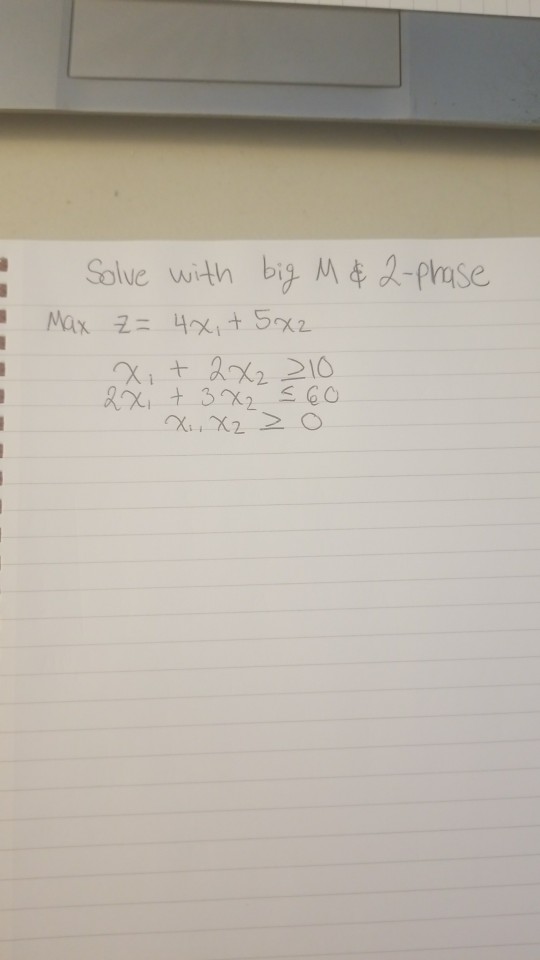 Solve with big M & 2-phase
Max z = 4x₁ + 5x₂
x₁ + 2x₂ ≥10
2x₁ + 3x₂ ≤ 60
x₁, x₂ ≥ 0